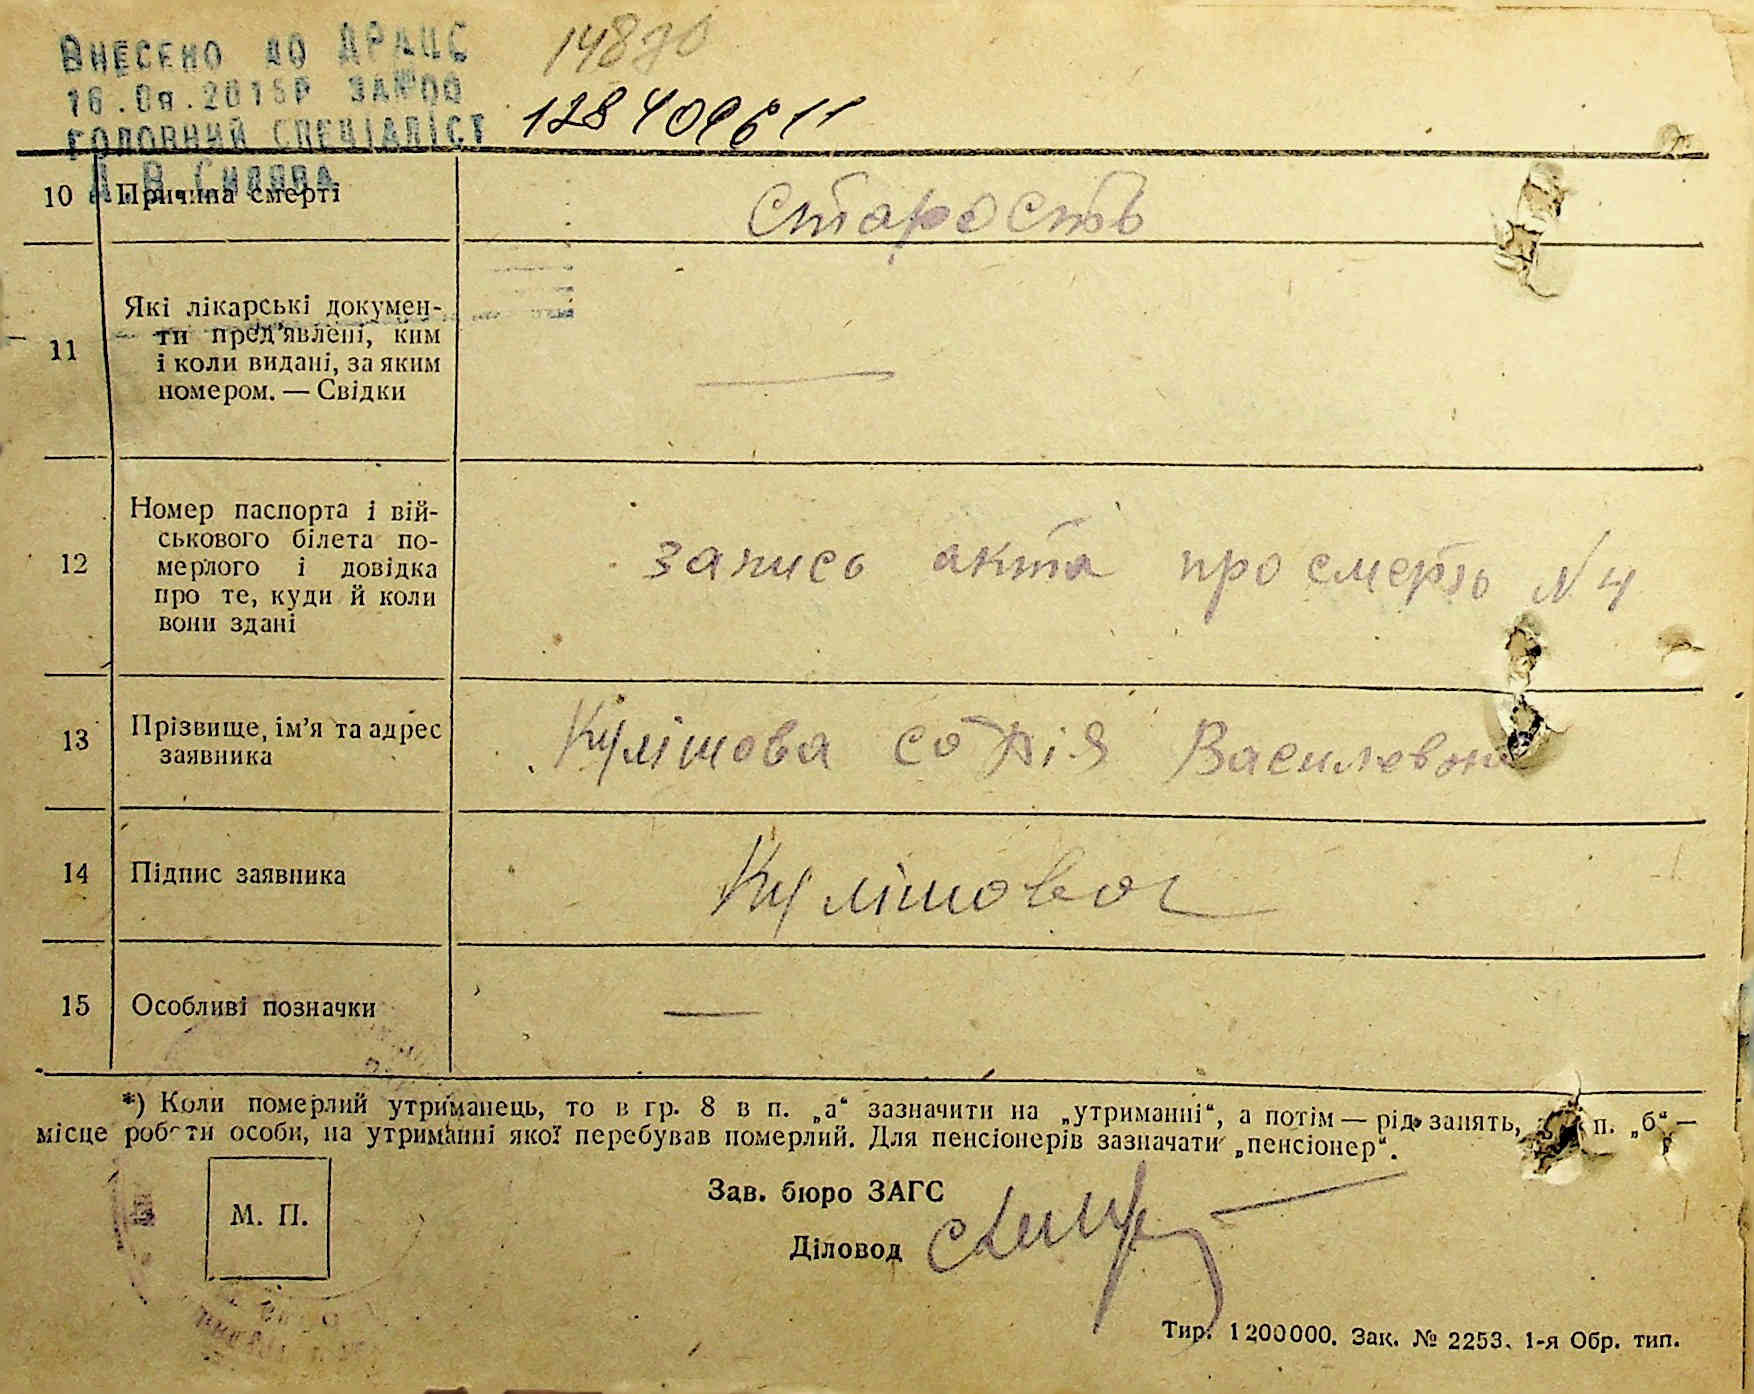 Внесено до ДРАЦС
ГОЛОВНИЙ СПЕЦІАЛІСТ
10 Причина смерті Старость
11 Які лікарські докумен-
ти пред’явлені, ким
і коли видані, за яким
номером. — Свідки —
12 Номер паспорта і вій-
ськового білета по-
мерлого і довідка
про те, куди й коли
вони здані
запись акта про смерть N 4
13 Прізвище, ім’я та адрес
заявника
Кулішова Софія Василевна
14 Підпис заявника Кулішова
15 Особливі позначки —
*) Коли померлий утриманець, то в гр. 8 в п. „а“ зазначити на „утриманні“, а потім — рід занять, п. „б“ —
місце роботи особи, на утриманні якої перебував померлий. Для пенсіонерів зазначати „пенсіонер“.
М. П.
Зав. бюро ЗАГС
Діловод
Тир. 1200000. Зак. № 2253. 1-я Обр. тип.